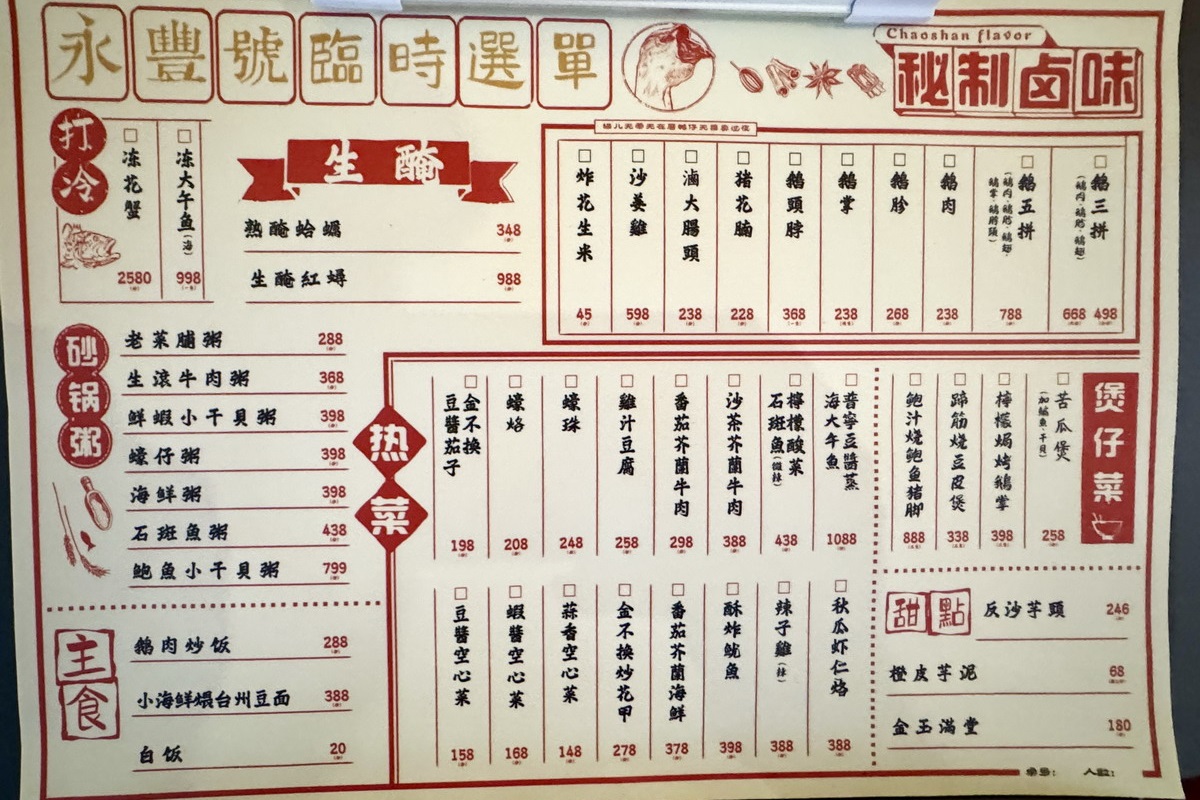 永豐號臨時選單
Chaoshan flavor
秘制卤味
打冷
冻花蟹
2580
冻大午鱼(海)
998
生醃
熟醃蛤蠣
348
生醃紅蟳
988
鵝三拼
668 498
鵝五拼
788
鵝肉
238
鵝胗
268
鵝掌
238
鵝頭脖
368
猪花腩
228
滷大腸頭
238
沙姜雞
598
炸花生米
45
砂锅粥
老菜脯粥
288
生滾牛肉粥
368
鮮蝦小干貝粥
398
蠔仔粥
398
海鮮粥
398
石斑魚粥
438
鮑魚小干貝粥
799
主食
鵝肉炒饭
288
小海鲜煨台州豆面
388
白饭
20
热菜
普寧豆醬蒸
海大午魚
1088
檸檬酸菜
石斑魚(微辣)
438
沙茶芥蘭牛肉
388
番茄芥蘭牛肉
298
雞汁豆腐
258
蠔珠
248
蠔烙
208
金不換
豆醬茄子
198
秋瓜虾仁烙
388
辣子雞(辣)
388
酥炸魷魚
398
番茄芥蘭海鮮
378
金不換炒花甲
278
蒜香空心菜
148
蝦醬空心菜
168
豆醬空心菜
158
煲仔菜
苦瓜煲
(加鱸魚、干貝)
258
檸檬焗烤鵝掌
398
蹄筋燒豆皮煲
338
鮑汁燒鮑魚猪脚
888
甜點
反沙芋頭
246
橙皮芋泥
68
金玉滿堂
180
人數: